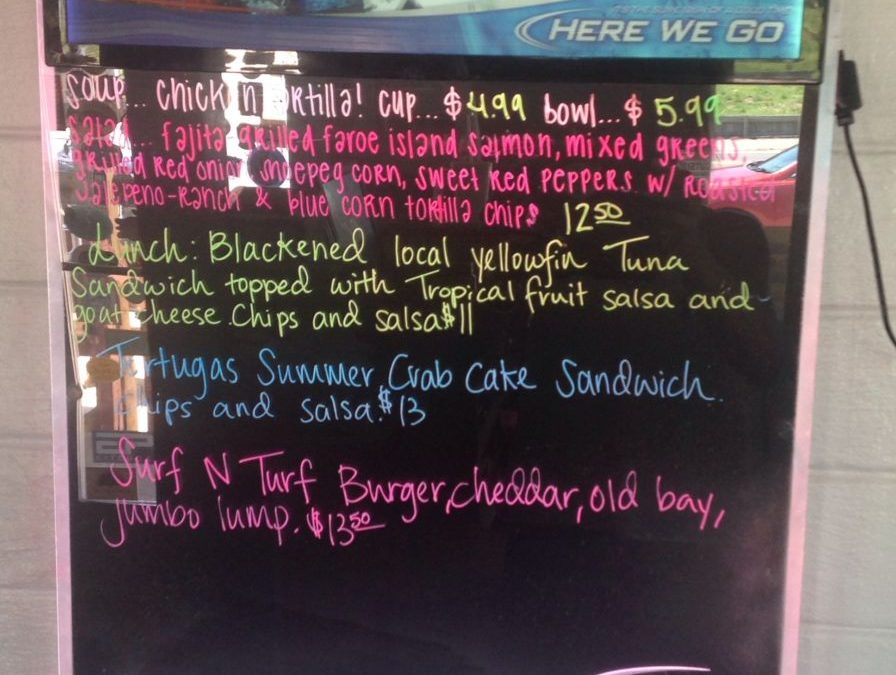 HERE WE GO
Soup... chicken tortilla! cup... $4.99 bowl...$ 5.99
Salad... fajita grilled faroe island salmon, mixed greens,
grilled red onion, shoepeg corn, sweet red peppers w/ roasted
Jalepeno-Ranch & blue corn tortilla chips 12 50
Lunch: Blackened local yellowfin Tuna
Sandwich topped with Tropical fruit salsa and
goat cheese. Chips and salsa $11
Tortugas Summer Crab Cake Sandwich.
Chips and salsa. $13
Surf N Turf Burger, cheddar, old bay,
jumbo lump. $13 50